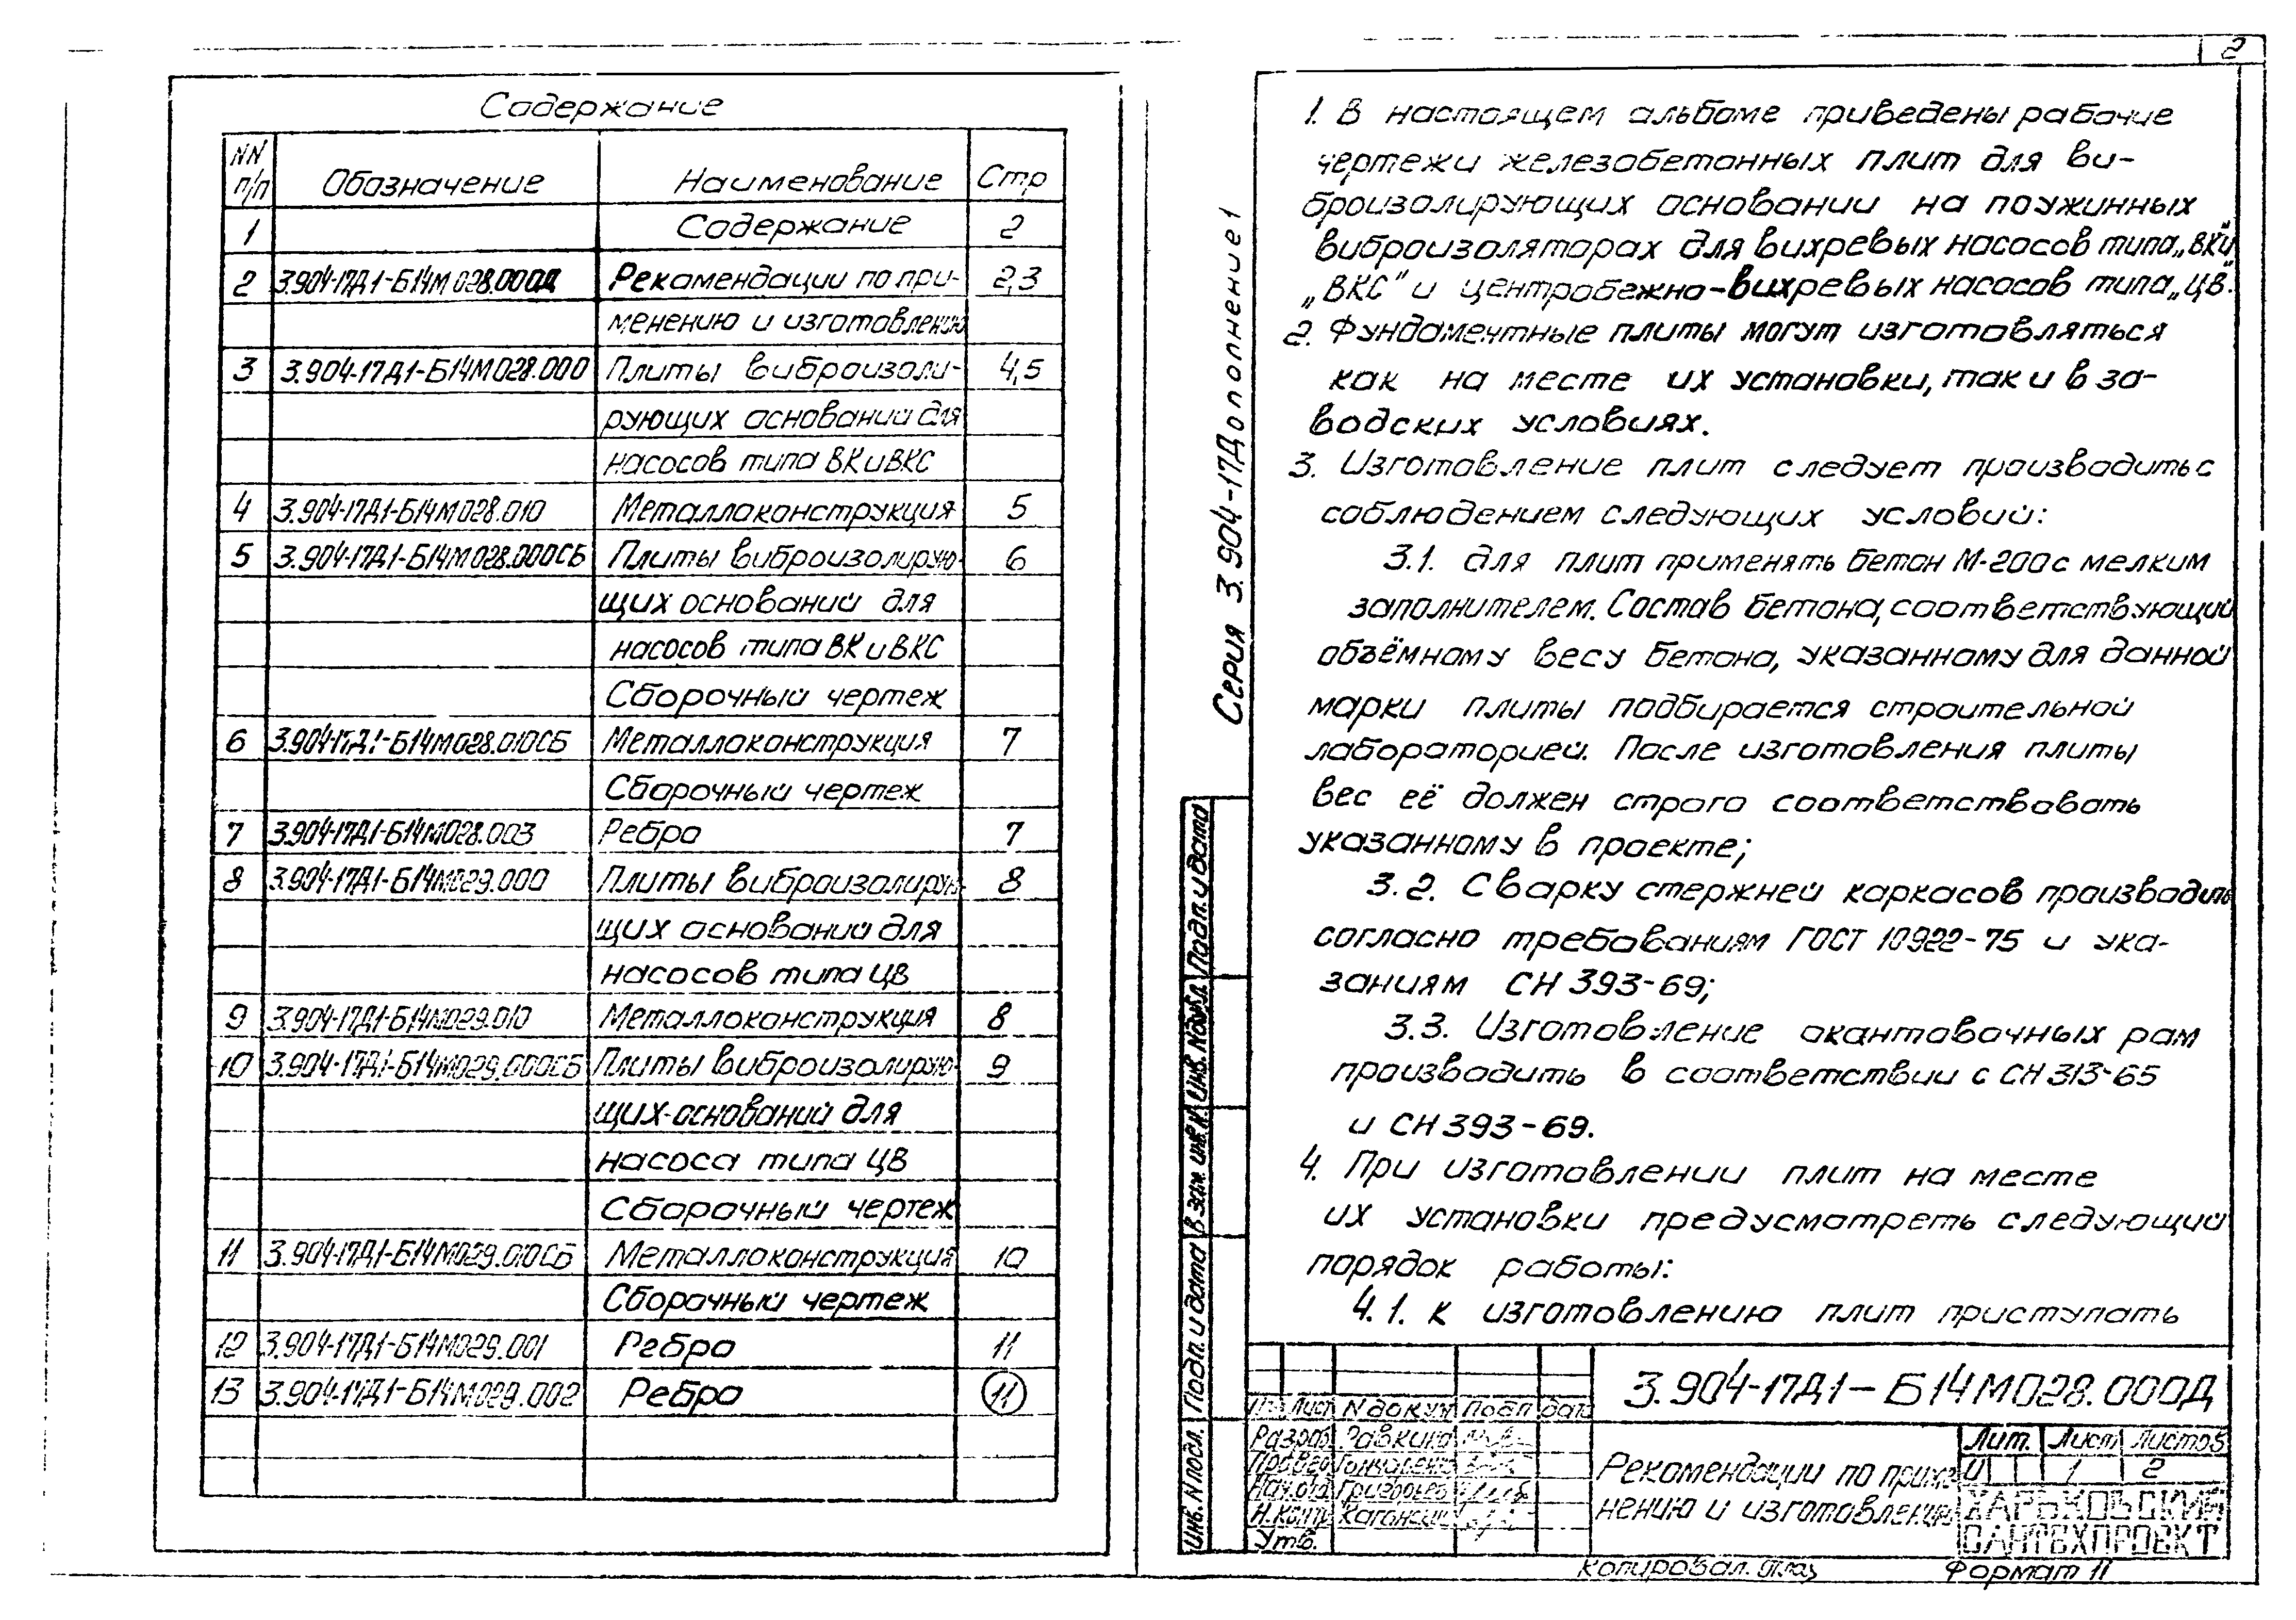 2
Содержание
NN п/п Обозначение Наименование Стр
1 Содержание 2
2 3.904-17Д1-Б14М028.000Д Рекомендации по при- 2,3
менению и изготовлению
3 3.904-17Д1-Б14М028.000 Плиты виброизоли- 4,5
рующих оснований для
насосов типа ВК и ВКС
4 3.904-17Д1-Б14М028.010 Металлоконструкция 5
5 3.904-17Д1-Б14М028.000СБ Плиты виброизолирую- 6
щих оснований для
насосов типа ВК и ВКС
Сборочный чертеж
6 3.904-17Д1-Б14М028.010СБ Металлоконструкция 7
Сборочный чертеж
7 3.904-17Д1-Б14М028.003 Ребро 7
8 3.904-17Д1-Б14М029.000 Плиты виброизолирую- 8
щих оснований для
насосов типа ЦВ
9 3.904-17Д1-Б14М029.010 Металлоконструкция 8
10 3.904-17Д1-Б14М029.000СБ Плиты виброизолирую- 9
щих оснований для
насоса типа ЦВ
Сборочный чертеж
11 3.904-17Д1-Б14М029.010СБ Металлоконструкция 10
Сборочный чертеж
12 3.904-17Д1-Б14М029.001 Ребро 11
13 3.904-17Д1-Б14М029.002 Ребро 11
Серия 3.904-17 Дополнение 1
1. В настоящем альбоме приведены рабочие
чертежи железобетонных плит для ви-
броизолирующих основании на поужинных
виброизоляторах для вихревых насосов типа „ВК" и
„ВКС" и центробежно-вихревых насосов типа „ЦВ".
2. Фундаментные плиты могут изготовляться
как на месте их установки, так и в за-
водских условиях.
3. Изготовление плит следует производить с
соблюдением следующих условий:
3.1. для плит применять бетон М-200 с мелким
заполнителем. Состав бетона, соответствующий
объёмному весу бетона, указанному для данной
марки плиты подбирается строительной
лабораторией. После изготовления плиты
вес её должен строго соответствовать
указанному в проекте;
3.2. Сварку стержней каркасов производить
согласно требованиям ГОСТ 10922-75 и ука-
заниям СН 393-69;
3.3. Изготовление окантовочных рам
производить в соответствии с СН 313-65
и СН 393-69.
4. При изготовлении плит на месте
их установки предусмотреть следующий
порядок работы:
4.1. к изготовлению плит приступать
Инв. N подл. Подп. и дата Взам. инв. N Инв. N дубл. Подп. и дата
3.904-17Д1-Б14М028.000Д
Лист N докум Подп Дата
Разраб. Равкина
Провер Гончаренко
Нач.отд Григорьев
Н.контр
Утв.
Рекомендации по приме-
нению и изготовлению
Лит. Лист Листов
И 1 2
ХАРЬКОВСКИЙ
САНТЕХПРОЕКТ
Копировал.
Формат 11